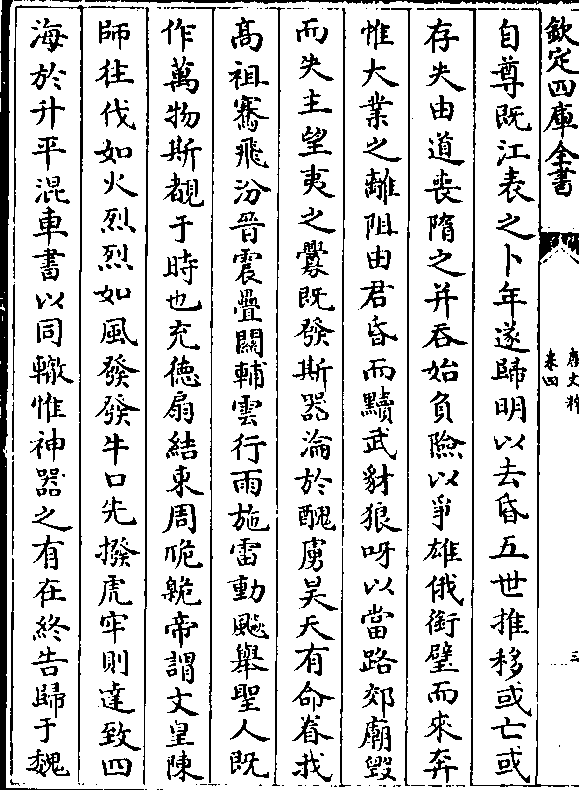 欽定四庫全書
唐文粹
卷四
三
自尊既江表之卜年遂歸明以去昏五世推移或亡或
存失由道喪隋之并吞始負險以爭雄俄銜璧而來奔
惟大業之離阻由君昏而黷武豺狼呀以當路郊廟毀
而失主望夷之釁既發斯器淪於醜虜昊天有命眷我
高祖騫飛汾晉震疊關輔雲行雨施雷動飈舉聖人既
作萬物斯覩于時也充徳扇結東周阢臲帝謂文皇陳
師往伐如火烈烈如風發發牛口先撥虎牢則達致四
海於升平混車書以同轍惟神器之有在終告歸于魏